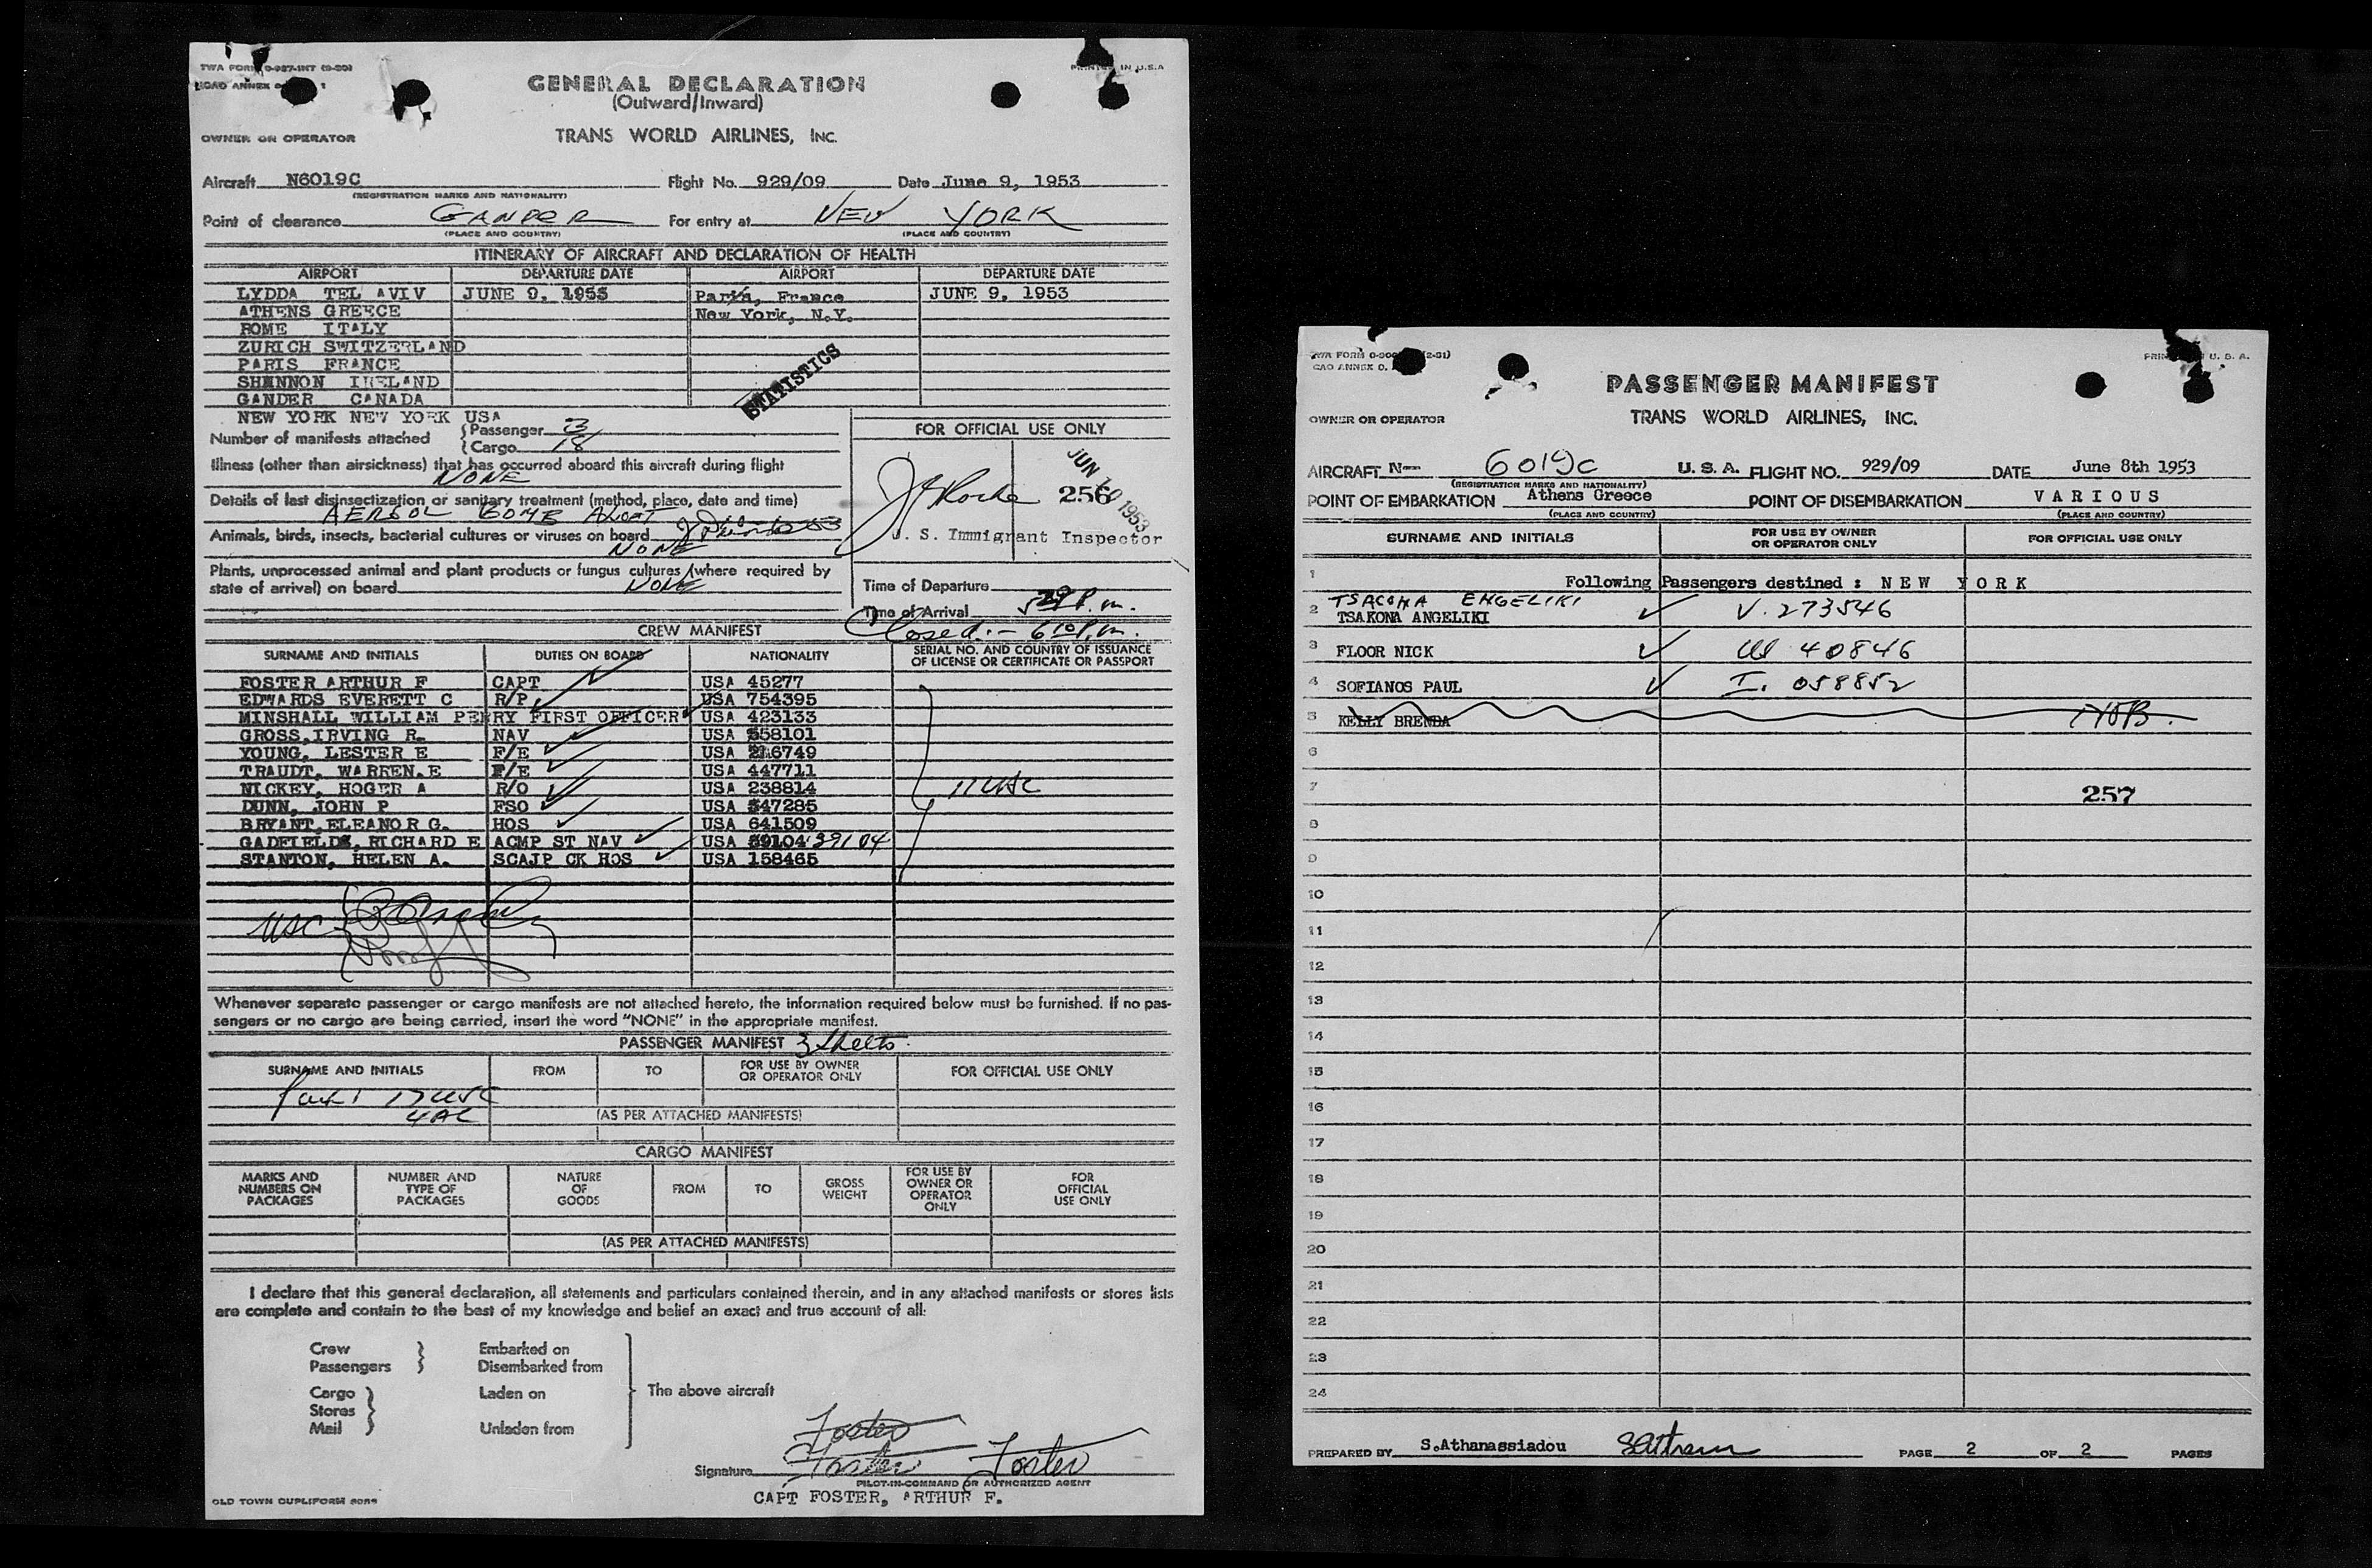 TWA FORM 0-927-INT (9-50)
PRINTED IN U.S.A
ICAO ANNEX 1
GENERAL DECLARATION
(Outward/Inward)
OWNER OR OPERATOR TRANS WORLD AIRLINES, INC.
Aircraft N6019C Flight No. 929/09 Date June 9, 1953
(REGISTRATION MARKS AND NATIONALITY)
Point of clearance GANDER For entry at NEW YORK
(PLACE AND COUNTRY) (PLACE AND COUNTRY)
ITINERARY OF AIRCRAFT AND DECLARATION OF HEALTH
AIRPORT DEPARTURE DATE AIRPORT DEPARTURE DATE
LYDDA TEL AVIV JUNE 9, 1953 Paris, France JUNE 9, 1953
ATHENS GREECE New York, N.Y.
ROME ITALY
ZURICH SWITZERLAND
PARIS FRANCE
SHANNON IRELAND
GANDER CANADA
STATISTICS
NEW YORK NEW YORK USA
Number of manifests attached
Passenger 3
Cargo 18
Illness (other than airsickness) that has occurred aboard this aircraft during flight
NONE
Details of last disinsectization or sanitary treatment (method, place, date and time)
AEROSOL BOMB ALOFT
Animals, birds, insects, bacterial cultures or viruses on board
NONE
Plants, unprocessed animal and plant products or fungus cultures (where required by
state of arrival) on board NONE
FOR OFFICIAL USE ONLY
JUN 10 1953
256
U. S. Immigrant Inspector
Time of Departure
Time of Arrival 529 P.m.
Closed:- 610 P.m.
CREW MANIFEST
SURNAME AND INITIALS DUTIES ON BOARD NATIONALITY SERIAL NO. AND COUNTRY OF ISSUANCE
OF LICENSE OR CERTIFICATE OR PASSPORT
FOSTER ARTHUR F CAPT USA 45277
EDWARDS EVERETT C R/P USA 754395
MINSHALL WILLIAM PERRY FIRST OFFICER USA 423133
GROSS, IRVING R. NAV USA 558101
YOUNG, LESTER E F/E USA 216749
TRAUDT, WARREN.E F/E USA 447711
NICKEY, HOGER A R/O USA 238814 11 USC
DUNN, JOHN P FSO USA 547285
BRYANT, ELEANOR G. HOS USA 641509
GADFIELDS, RICHARD E ACMP ST NAV USA 39104 39104
STANTON, HELEN A. SCAJP CK HOS USA 158465
USC
Whenever separate passenger or cargo manifests are not attached hereto, the information required below must be furnished. If no pas-
sengers or no cargo are being carried, insert the word "NONE" in the appropriate manifest.
PASSENGER MANIFEST 3 sheets.
SURNAME AND INITIALS FROM TO FOR USE BY OWNER
OR OPERATOR ONLY FOR OFFICIAL USE ONLY
17 USC
4 AL
(AS PER ATTACHED MANIFESTS)
CARGO MANIFEST
MARKS AND
NUMBERS ON
PACKAGES
NUMBER AND
TYPE OF
PACKAGES
NATURE
OF
GOODS
FROM
TO
GROSS
WEIGHT
FOR USE BY
OWNER OR
OPERATOR
ONLY
FOR
OFFICIAL
USE ONLY
(AS PER ATTACHED MANIFESTS)
I declare that this general declaration, all statements and particulars contained therein, and in any attached manifests or stores lists
are complete and contain to the best of my knowledge and belief an exact and true account of all:
Crew Embarked on
Passengers Disembarked from
Cargo Laden on
The above aircraft
Stores
Mail Unladen from
Foster
Signature Foster Foster
PILOT-IN-COMMAND OR AUTHORIZED AGENT
CAPT FOSTER, ARTHUR F.
OLD TOWN DUPLIFORM
TWA FORM (2-51)
PRINTED IN U. S. A.
CAO ANNEX
PASSENGER MANIFEST
OWNER OR OPERATOR TRANS WORLD AIRLINES, INC.
AIRCRAFT N-- 6019C U. S. A. FLIGHT NO. 929/09 DATE June 8th 1953
(REGISTRATION MARKS AND NATIONALITY)
POINT OF EMBARKATION Athens Greece POINT OF DISEMBARKATION VARIOUS
(PLACE AND COUNTRY) (PLACE AND COUNTRY)
SURNAME AND INITIALS FOR USE BY OWNER
OR OPERATOR ONLY FOR OFFICIAL USE ONLY
1 Following Passengers destined : NEW YORK
TSACONA ENGELIKI
2 TSAKONA ANGELIKI V. 273546
3 FLOOR NICK W 40846
4 SOFIANOS PAUL I. 058852
5 KELLY BRENDA NOB.
6
7 257
8
9
10
11
12
13
14
15
16
17
18
19
20
21
22
23
24
PREPARED BY S.Athanassiadou PAGE 2 OF 2 PAGES